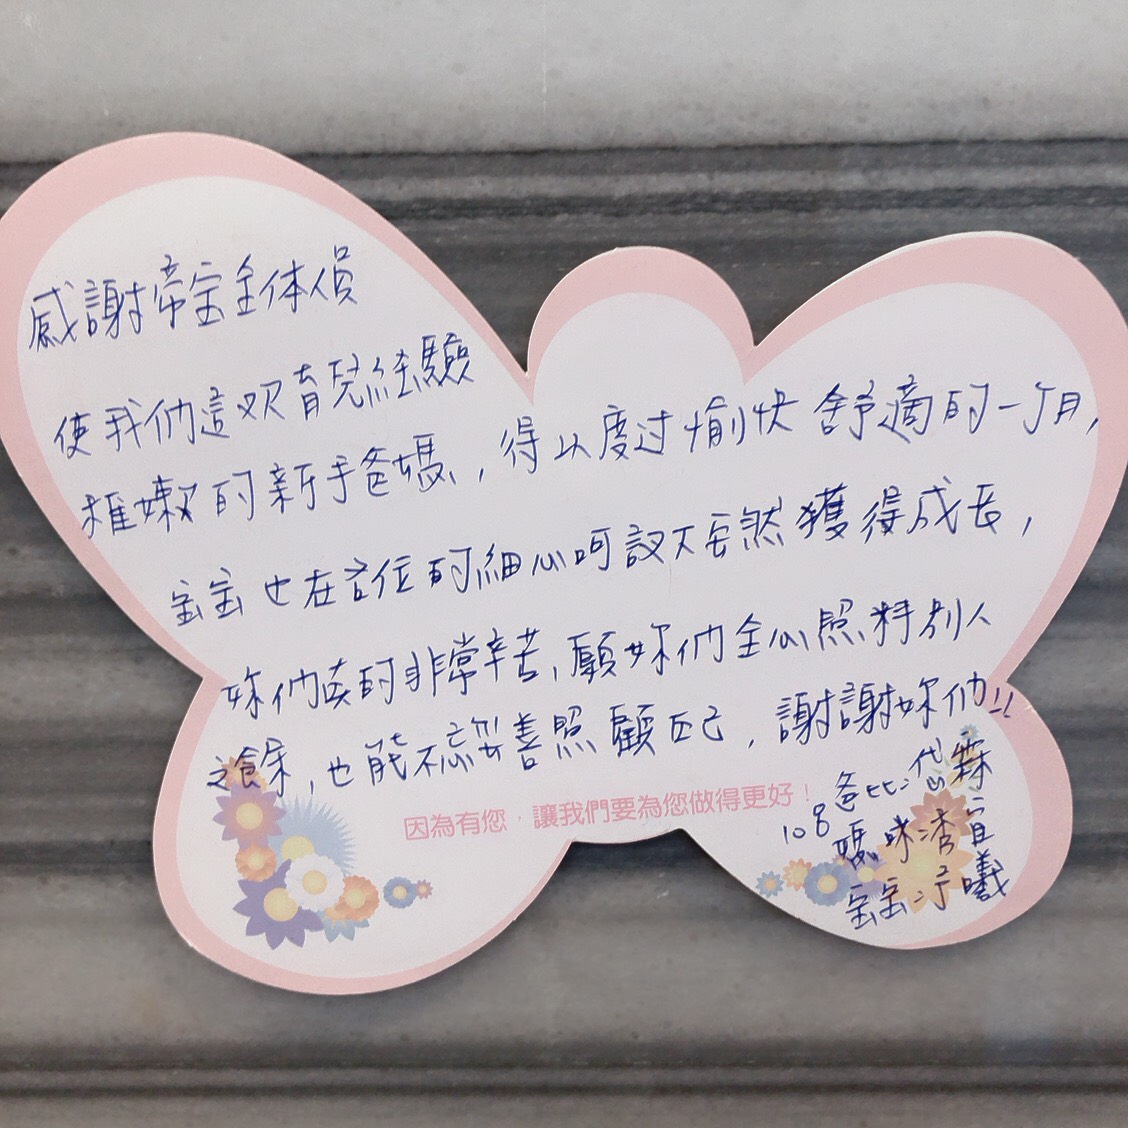 感謝帝宝全体員
使我们這双育兒経驗
稚嫩的新手爸媽,得以度过愉快舒適的一个月,
宝宝也在各位的細心呵護下安然獲得成長,
妳们真的非常辛苦,願妳们全心照料別人
之餘,也能不忘妥善照顧自己,謝謝妳们!!
因為有您,讓我們要為您做得更好!
108 爸比:岱霖
媽咪
宝宝 曦